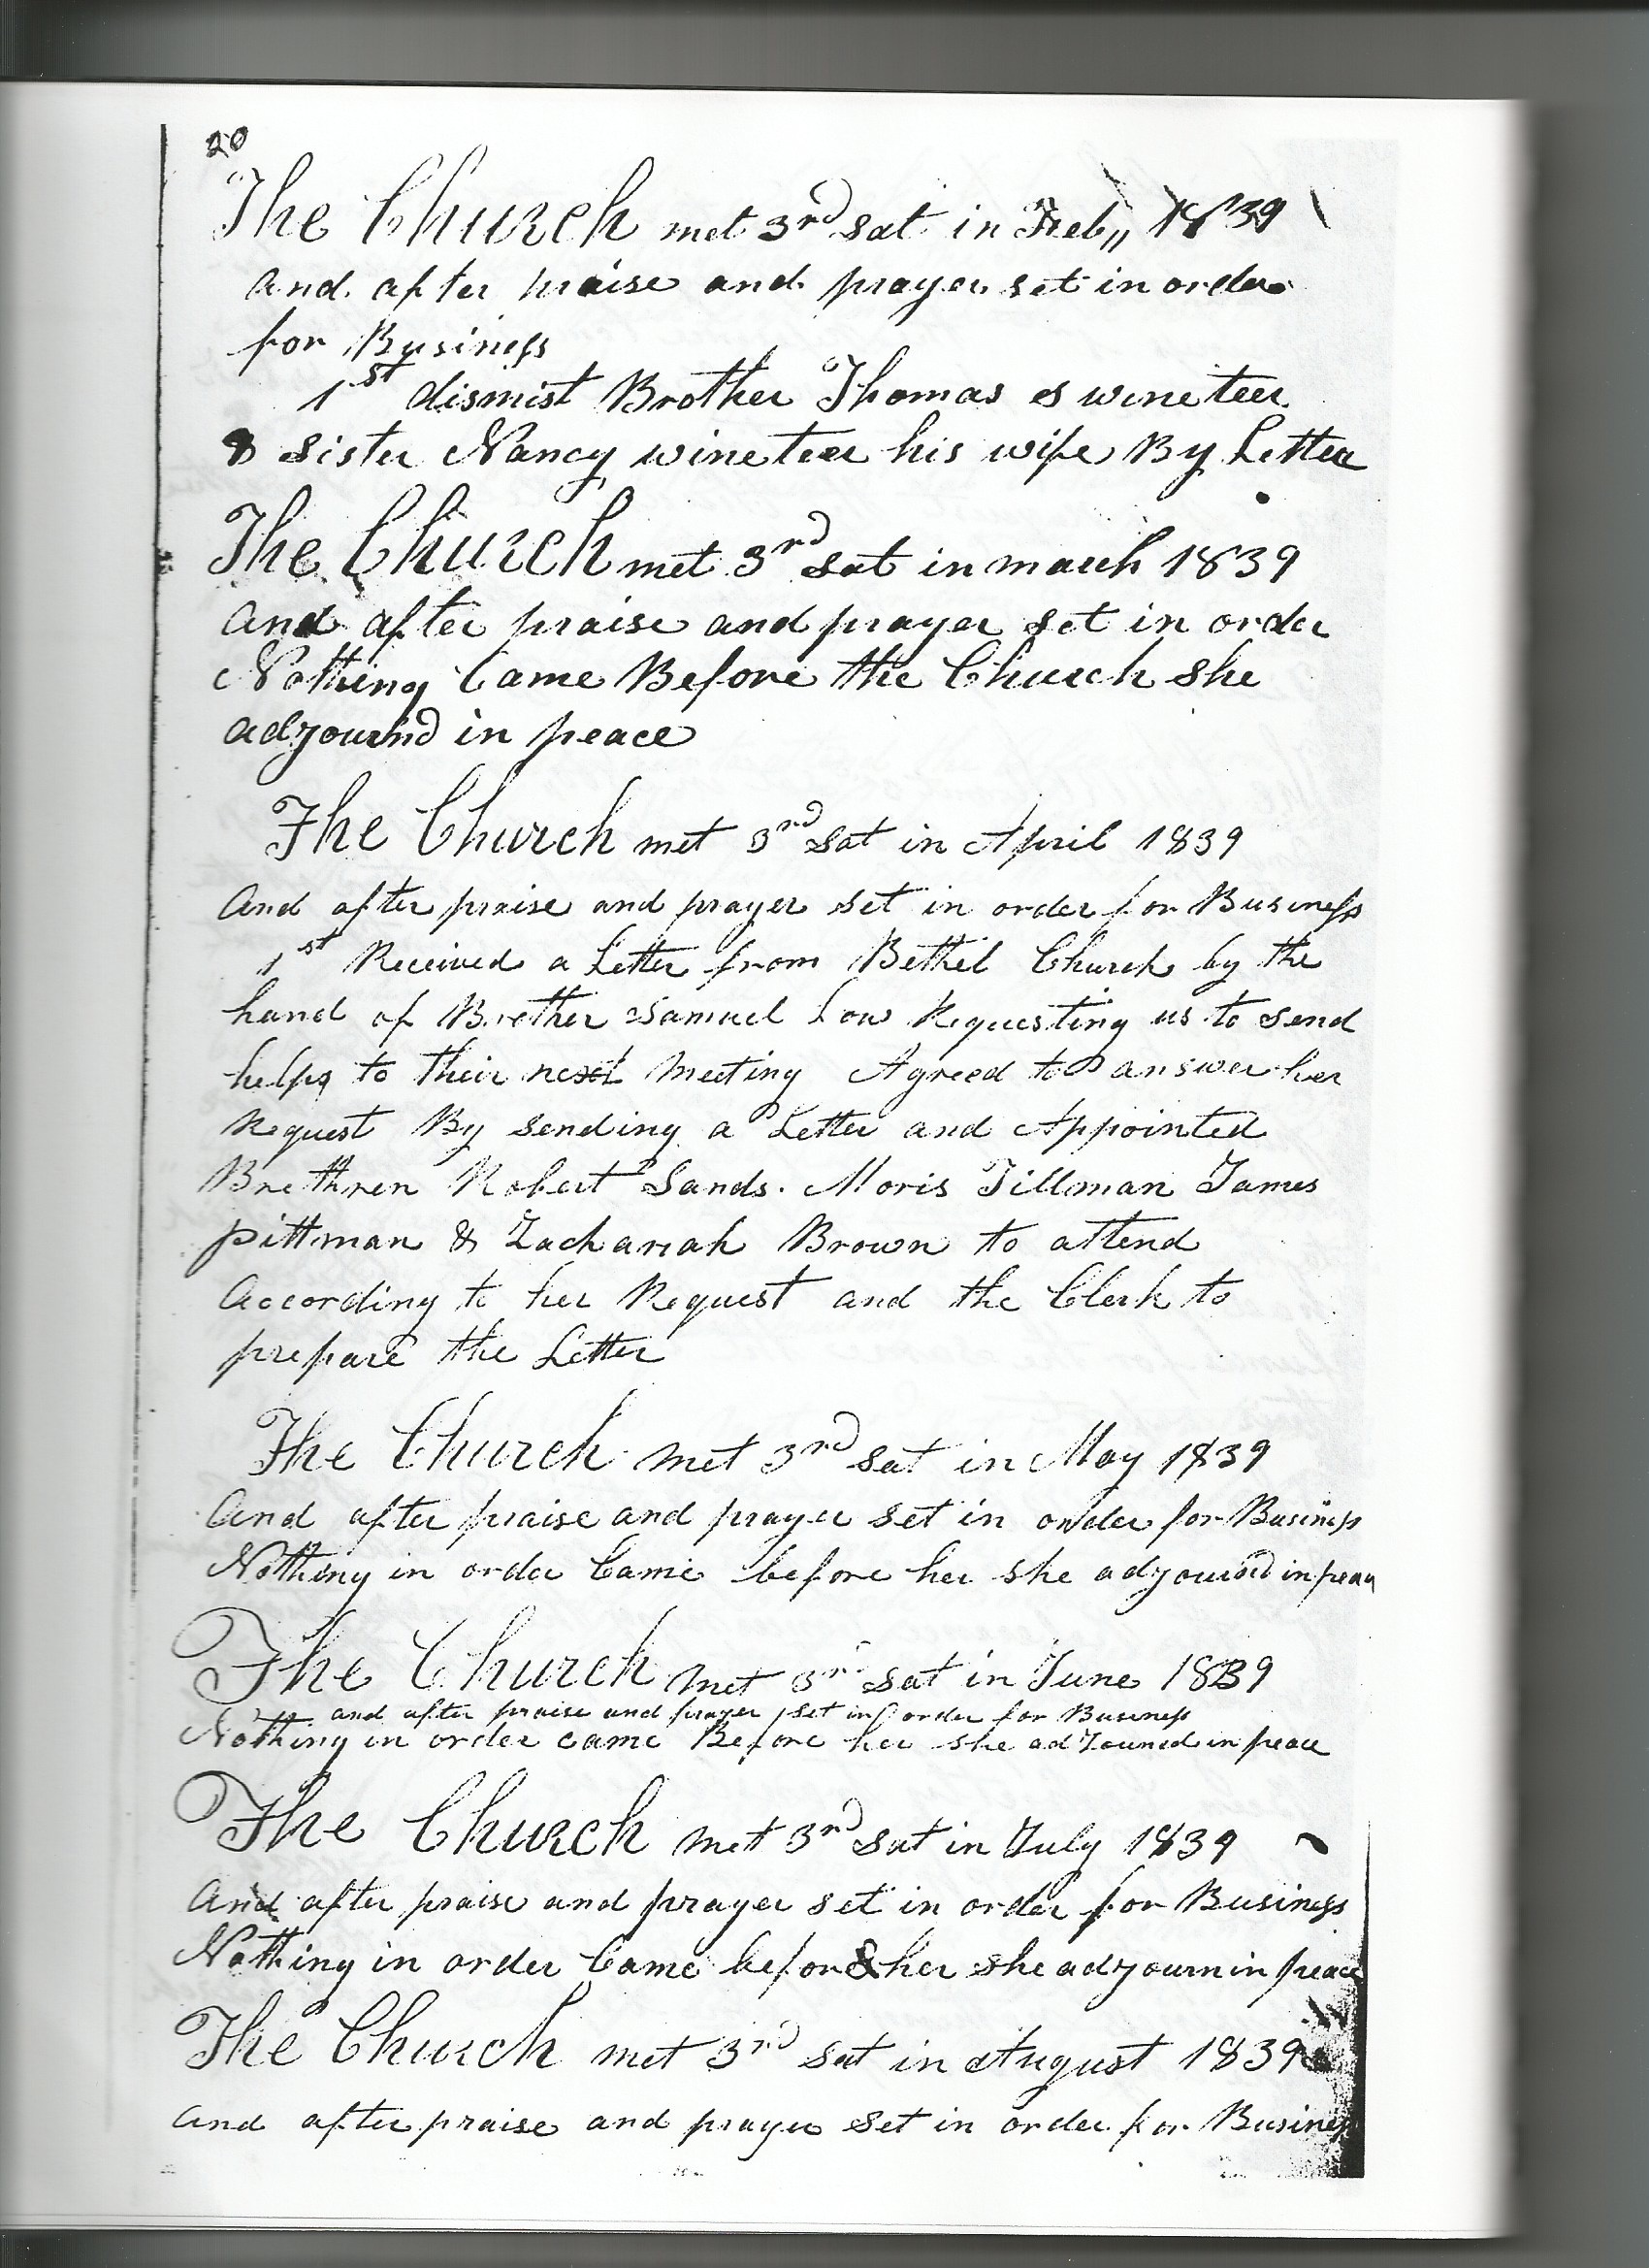 20
The Church met 3rd Sat in Feb,, 1839
And after praise and prayer set in order
for Business
1st dismist Brother Thomas S wineteer
& Sister Nancy wineteer his wife By Letter
The Church met 3rd Sat in march 1839
And after praise and prayer set in order
Nothing Came Before the Church She
adjournd in peace
The Church met 3rd Sat in April 1839
And after praise and prayer set in order for Business
1st Received a Letter from Bethel Church by the
hand of Brother Samuel Low Requesting us to Send
helps to their next Meeting Agreed to answer her
Request By Sending a Letter and Appointed
Brethren Robert Sands. Moris Tillman James
pittman & Zachariah Brown to attend
According to her Request and the Clerk to
prepare the Letter
The Church Met 3rd Sat in May 1839
And after praise and prayer set in order for Business
Nothing in order Came before her she adjournd in peace
The Church Met 3rd Sat in June 1839
and after praise and prayer set in order for Business
Nothing in order came Before her she adjourned in peace
The Church Met 3rd Sat in July 1839
And after praise and prayer set in order for Business
Nothing in order Came before her she adjourn in peace
The Church met 3rd Sat in August 1839
And after praise and prayer set in order for Business